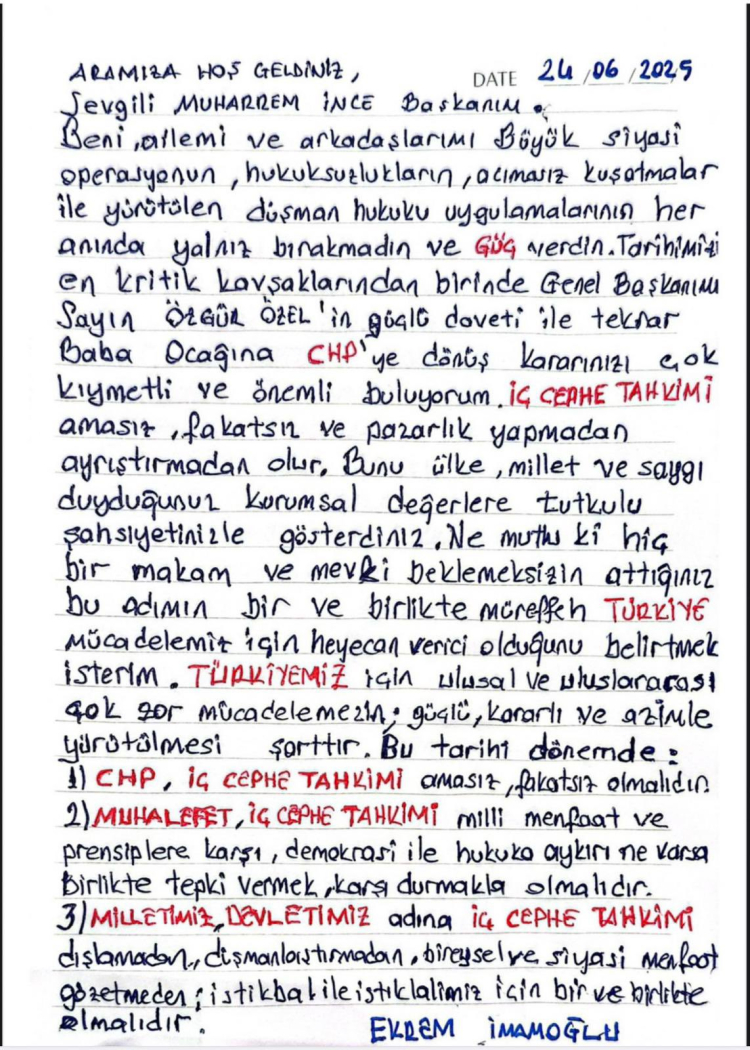 ARAMIZA HOŞ GELDİNİZ, DATE 24/06/2025
Sevgili MUHARREM İNCE Başkanım.
Beni, ailemi ve arkadaşlarımı Büyük siyasi
operasyonun, hukuksuzlukların, acımasız kuşatmalar
ile yürütülen düşman hukuku uygulamalarının her
anında yalnız bırakmadın ve GÜÇ verdin. Tarihimizi
en kritik kavşaklarından birinde Genel Başkanım
Sayın ÖZGÜR ÖZEL'in güçlü daveti ile tekrar
Baba Ocağına CHP'ye dönüş kararınızı çok
kıymetli ve önemli buluyorum. İÇ CEPHE TAHKİMİ
amasız, fakatsız ve pazarlık yapmadan
ayrıştırmadan olur. Bunu ülke, millet ve saygı
duyduğunuz kurumsal değerlere tutkulu
şahsiyetinizle gösterdiniz. Ne mutlu ki hiç
bir makam ve mevki beklemeksizin attığınız
bu adımın bir ve birlikte müreffeh TÜRKİYE
mücadelemiz için heyecan verici olduğunu belirtmek
isterim. TÜRKİYEMİZ için ulusal ve uluslararası
çok zor mücadelemezin; güçlü, kararlı ve azimle
yürütülmesi şarttır. Bu tarihi dönemde:
1) CHP, İÇ CEPHE TAHKİMİ amasız, fakatsız olmalıdır
2) MUHALEFET, İÇ CEPHE TAHKİMİ milli menfaat ve
prensiplere karşı, demokrasi ile hukuka aykırı ne varsa
Birlikte tepki vermek, karşı durmakla olmalıdır.
3) MİLLETİMİZ, DEVLETİMİZ adına İÇ CEPHE TAHKİMİ
dışlamadan, düşmanlaştırmadan, bireysel ve siyasi menfaat
gözetmeden; istikbal ile istiklalimiz için bir ve birlikte
olmalıdır. EKREM İMAMOĞLU